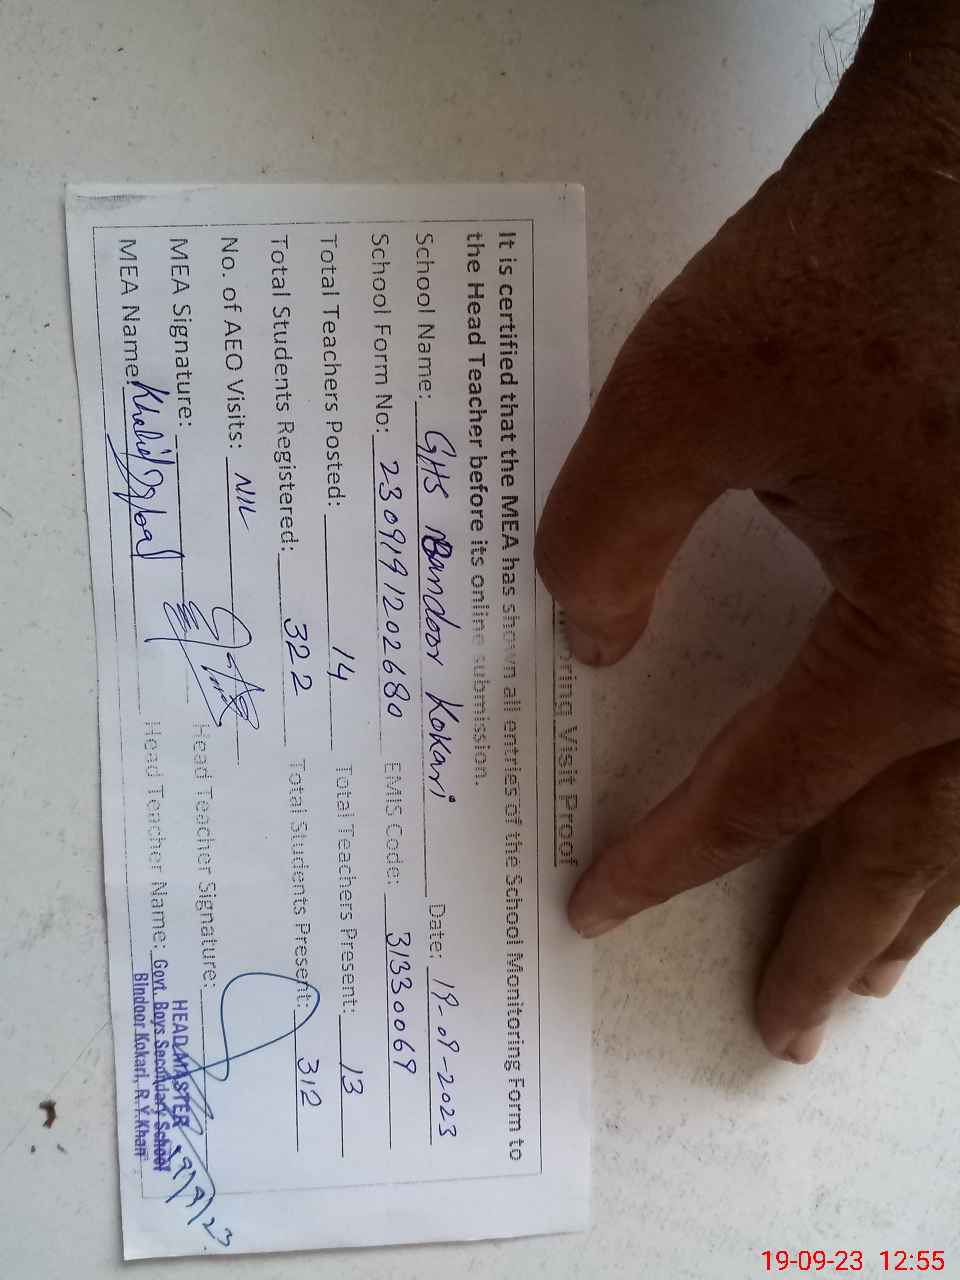 oring Visit Proof
It is certified that the MEA has shown all entries of the School Monitoring Form to
the Head Teacher before its online submission.
School Name: GHS Bandoor Kokari Date: 19-09-2023
School Form No: 2309191202680 EMIS Code: 31330069
Total Teachers Posted: 14 Total Teachers Present: 13
Total Students Registered: 322 Total Students Present: 312
No. of AEO Visits: NIL
MEA Signature: Head Teacher Signature:
MEA Name: Khalid Iqbal Head Teacher Name:
HEAD MASTER
Govt. Boys Secondary School
Bindoor Kokari, R.Y.Khan
19/9/23
19-09-23 12:55